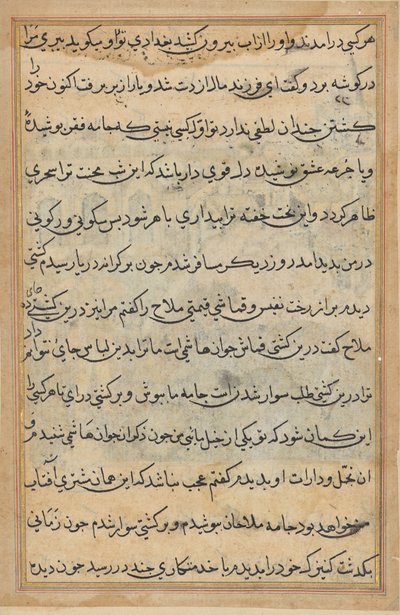 هر کسی درامدند و او را از اب بیرون کشیدند بغدادی توا و میکوید پیری مرا
در کوشه برد و کفت ای فرزند مال از دست شد و یار از بر برفت اکنون خود را
کشتن چندان لطفی ندارد تو او کسی نیستی که جامه فقر نپوشیدهٔ
و یا جرعه عشق نوشیده دل قوی دار باشد که این شب محنت ترا سحری
ظاهر کردد و این بخت خفته ترا بیداری باهر شود بس سکونی و رکونی
در من بدید امد روز دیکر مسافر شدم چون بر کرانه دریا رسیدم کشتی
دیدم بر از رخت نفیس و قماش قیمتی ملاح را کفتم مرا نیز درین کشتی جای ده
ملاح کفت درین کشتی قماش جوان هاشمی است ما ترا بدین لباس جای نتوانیم داد
ترا درین کشتی طلب سوار شدن است جامه ما بپوش و بر کشتی درای تا هر کسی را
این کمان شود که تو یکی از خیل مائی من چون ذکر ان جوان هاشمی شنیدم و
ان تجمل و دارات او بدیدم کفتم عجب نباشد که این همان مشتری افتاب
من خواهد بود جامه ملاحان بپوشیدم و بر کشتی سوار شدم چون زمانی
بکذشت کنیزک خود را دیدم با خدمتکاری چند در رسید چون دیدم